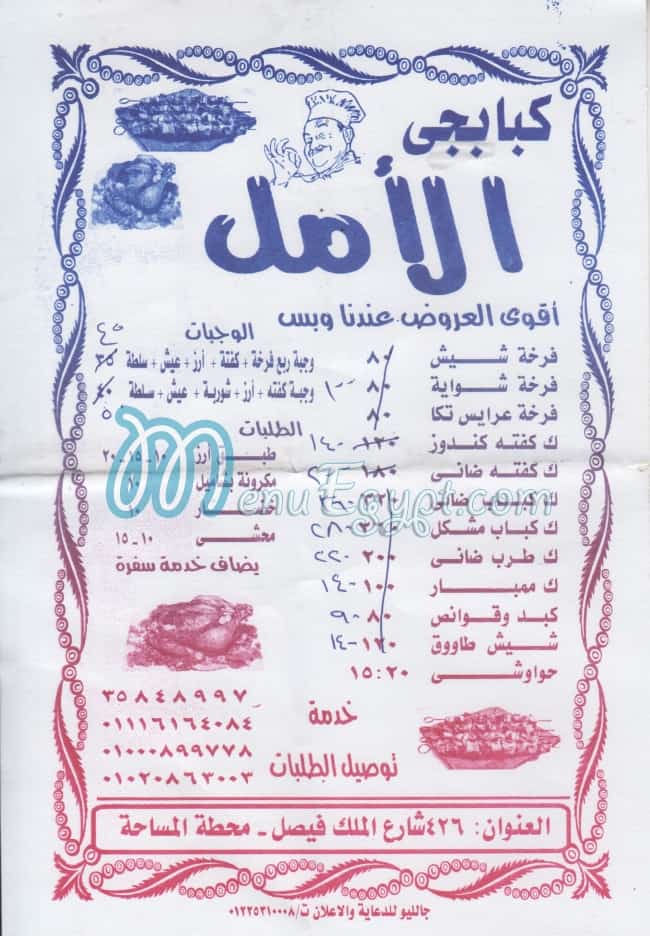 كبابجى
الأمل
أقوى العروض عندنا وبس
فرخة شيش ٨٠
فرخة شواية ٨٠ ١٠٠
فرخة عرايس تكا ٨٠
ك كفته كندوز ١٣٠ ١٤٠
ك كفته ضانى ١٨٠
ك كباب ضانى ٣٢٠
ك كباب مشكل ٢٨٠
ك طرب ضانى ٢٠٠ ٢٢٠
ك ممبار ١٠٠ ١٤٠
كبد وقوانص ٨٠ ٩٠
شيش طاووق ١٢٠ ١٤٠
حواوشى ١٥:٢٠
الوجبات ٤٥
وجبة ربع فرخة + كفتة + أرز + عيش + سلطة ٣٥
وجبة كفته + أرز + شوربة + عيش + سلطة ٤٠
٥٠
الطلبات
طبق أرز ١٠-١٥-٢٠
مكرونة بشاميل ١٠
خضار ١٠
محشى ١٠-١٥
يضاف خدمة سفرة
MenuEgypt.com
خدمة
توصيل الطلبات
٣٥٨٤٨٩٩٧
٠١١١٦١٦٤٠٨٤
٠١٠٠٠٨٩٩٧٧٨
٠١٠٢٠٨٦٣٠٠٣
العنوان: ٤٢٦ شارع الملك فيصل - محطة المساحة
جالليو للدعاية والاعلان ت/٠١٢٢٥٣١٠٠٠٨